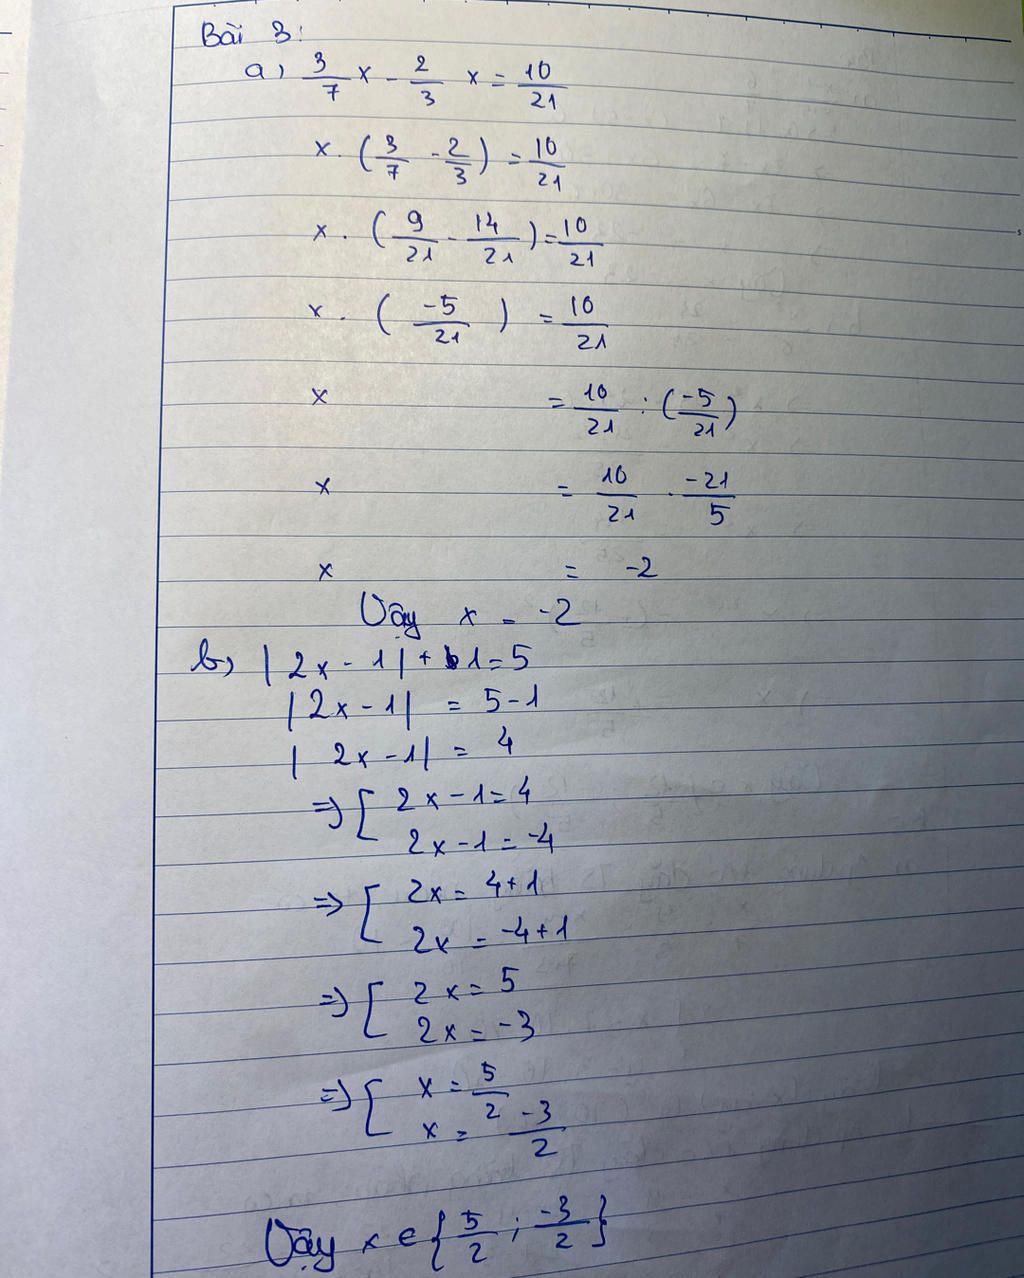 Bài 3:
a, 3/7 x - 2/3 x = 10/21
x . (3/7 - 2/3) = 10/21
x . (9/21 - 14/21) = 10/21
x . (-5/21) = 10/21
x = 10/21 : (-5/21)
x = 10/21 . -21/5
x = -2
Vậy x = -2
b, |2x - 1| + 1 = 5
|2x - 1| = 5 - 1
|2x - 1| = 4
=> [ 2x - 1 = 4
2x - 1 = -4
=> [ 2x = 4 + 1
2x = -4 + 1
=> [ 2x = 5
2x = -3
=> [ x = 5/2
x = -3/2
Vậy x ∈ {5/2 ; -3/2}